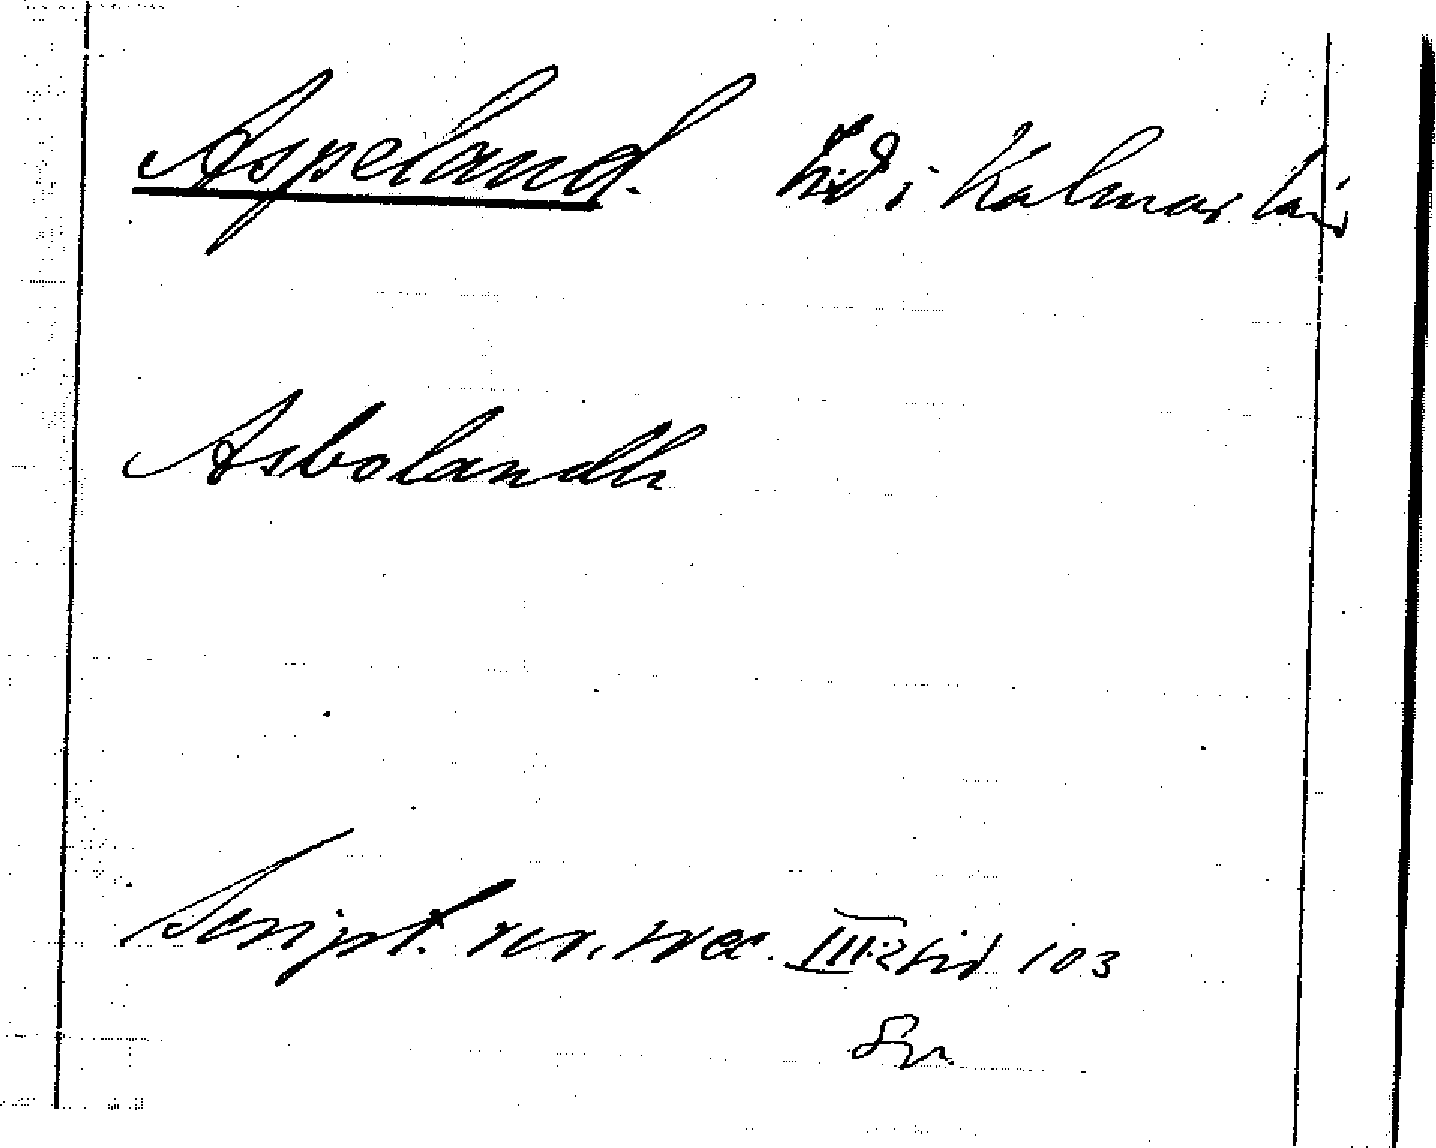 Aspeland. hd i Kalmar län
Asbolandh
Script. rer. svec. III:2 sid 103